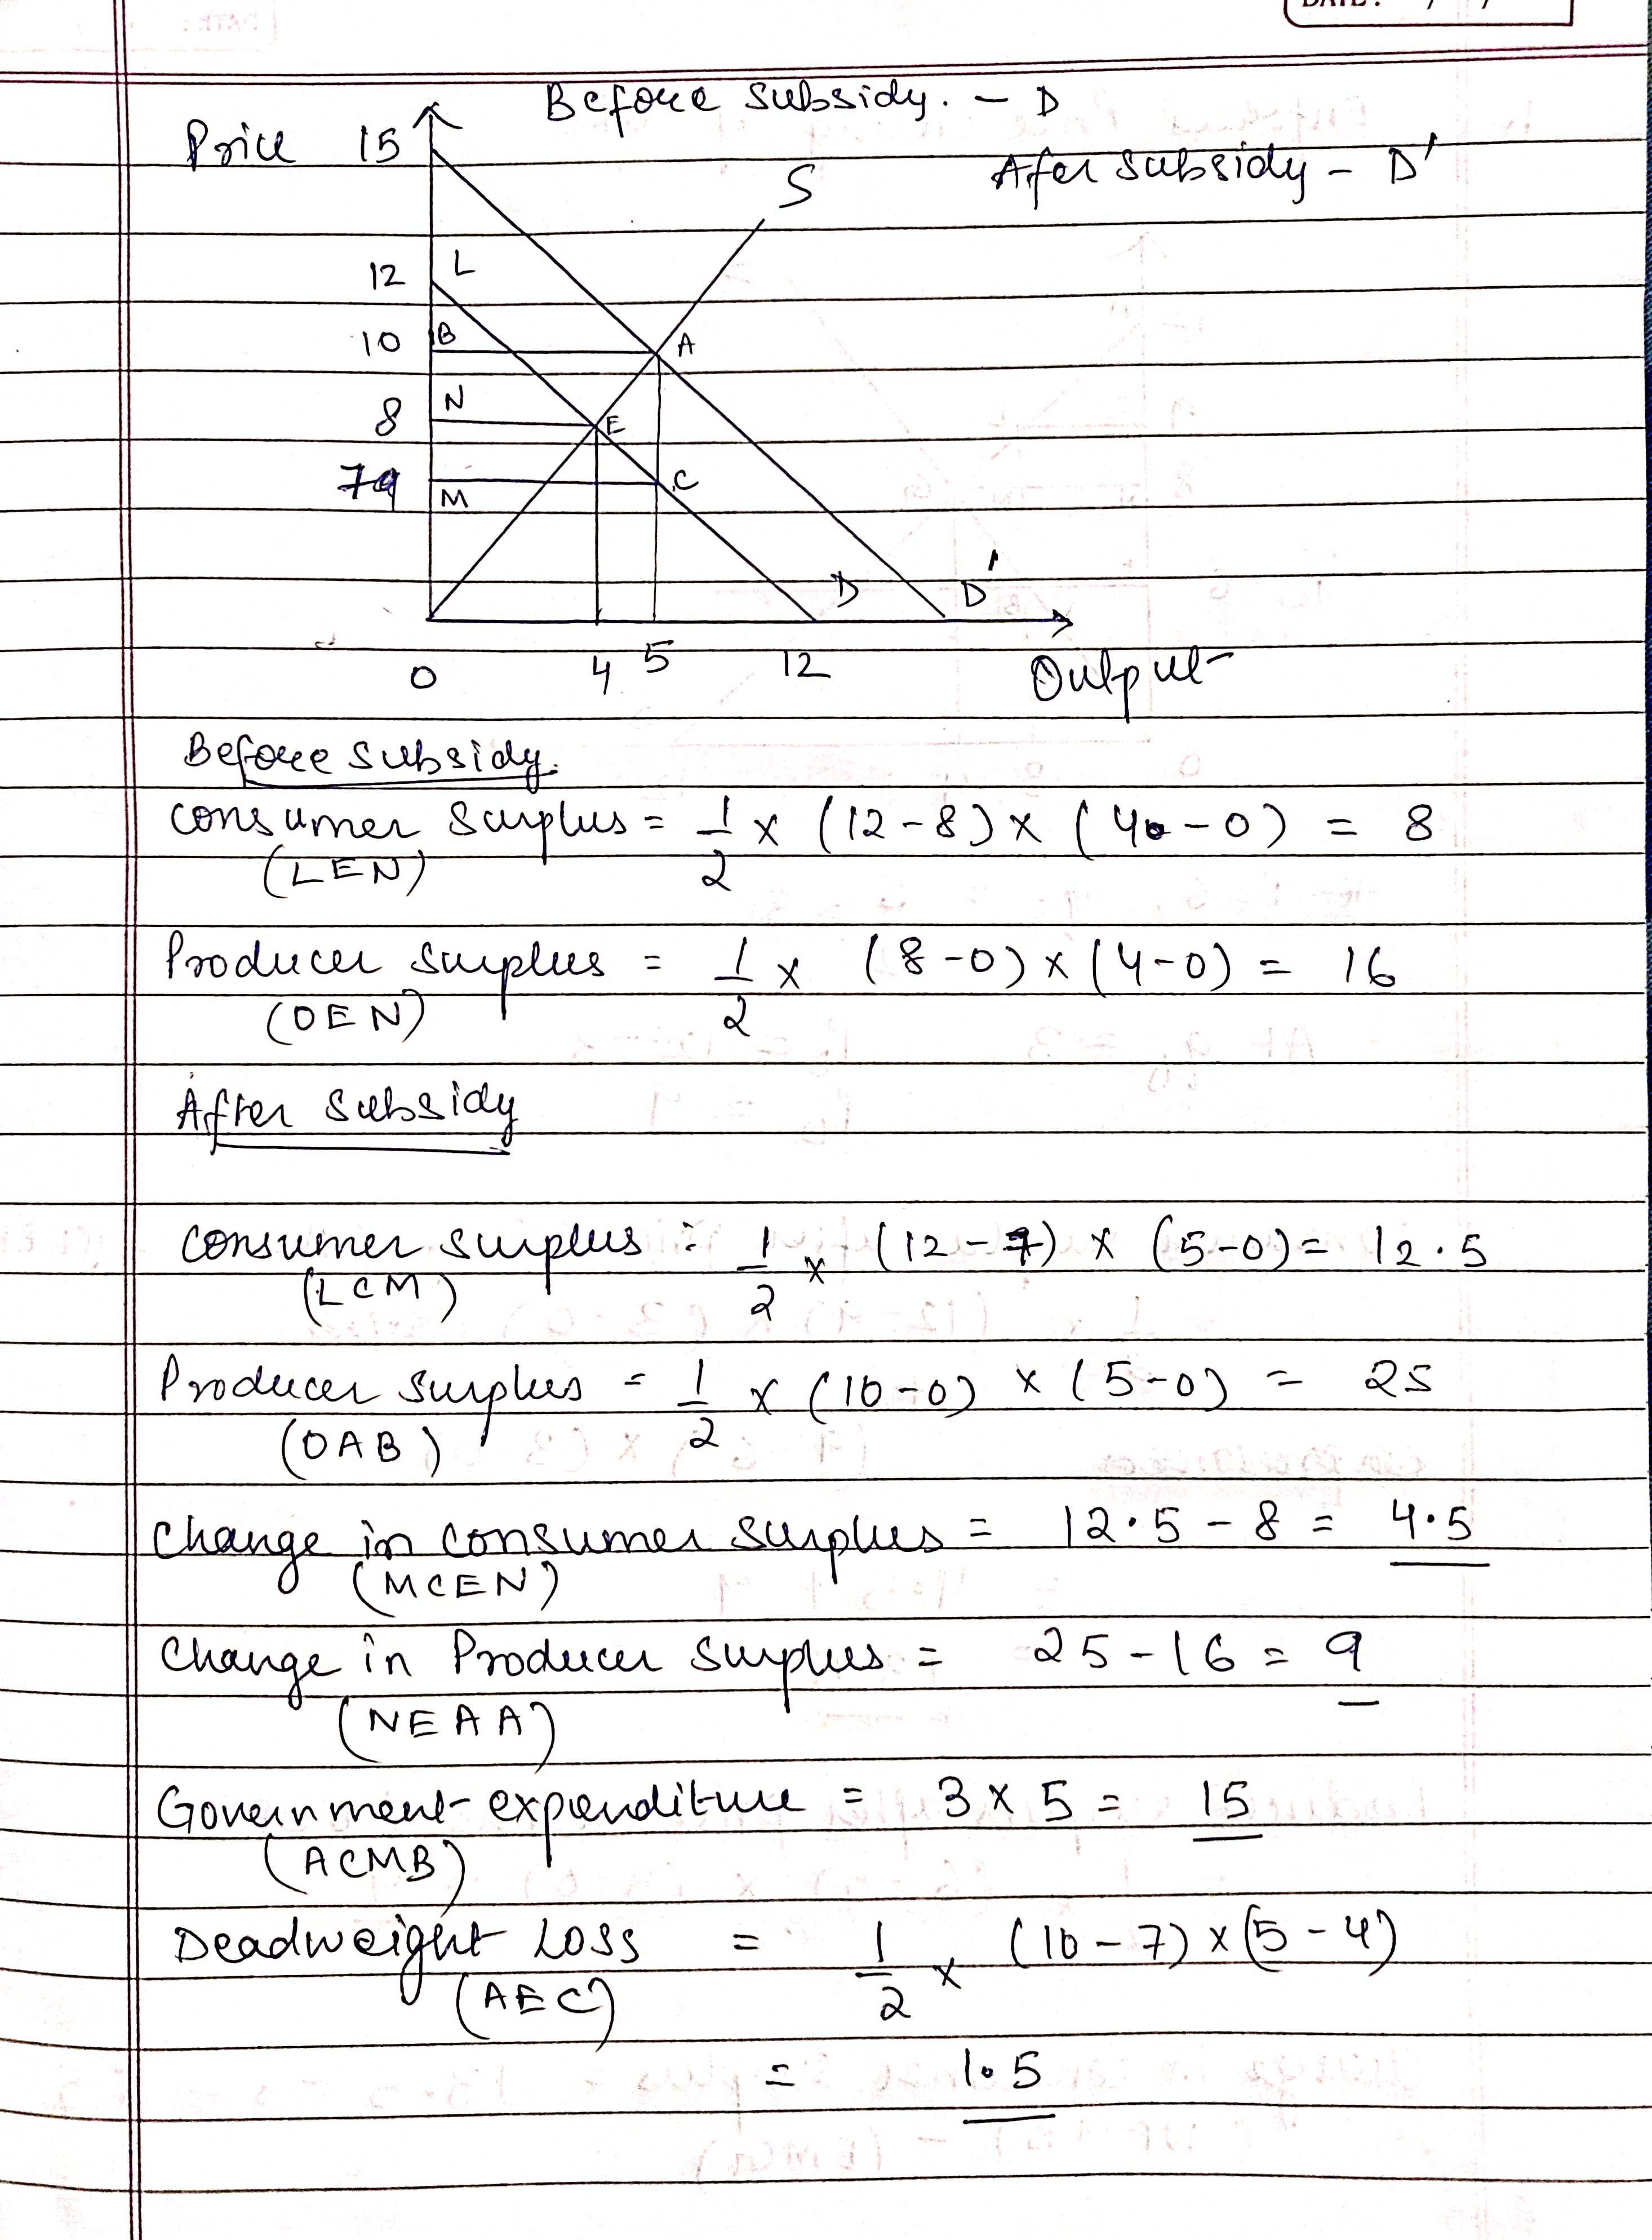 DATE: / /
Before subsidy. - D
Price 15
Afer subsidy - D'
S
12 L
10 B A
8 N E
79 M C
D D'
0 4 5 12 Output
Before subsidy.
Consumer Surplus = 1/2 x (12-8) x (40-0) = 8
(LEN)
Producer Surplus = 1/2 x (8-0) x (4-0) = 16
(OEN)
After subsidy
Consumer surplus : 1/2 x (12-7) x (5-0) = 12.5
(LCM)
Producer surplus = 1/2 x (10-0) x (5-0) = 25
(OAB)
Change in consumer surplus = 12.5 - 8 = 4.5
(MCEN)
Change in Producer Surplus = 25-16 = 9
(NEAA)
Government expenditure = 3 x 5 = 15
(ACMB)
Deadweight Loss = 1/2 x (10-7) x (5-4)
(AEC)
= 1.5